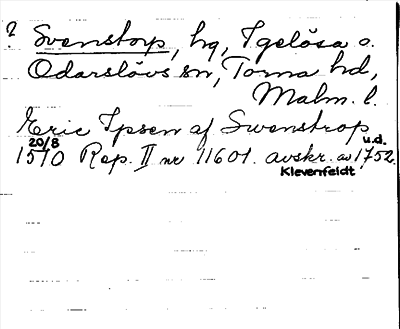 ? Svenstorp, hg, Igelösa o.
Odarslövs sn, Torna hd,
Malm. l.
Eric Ipsen af Swenstrop
20/8 u.d.
1510 Rep. II nr 11601. avskr. av 1752.
Klevenfeldt